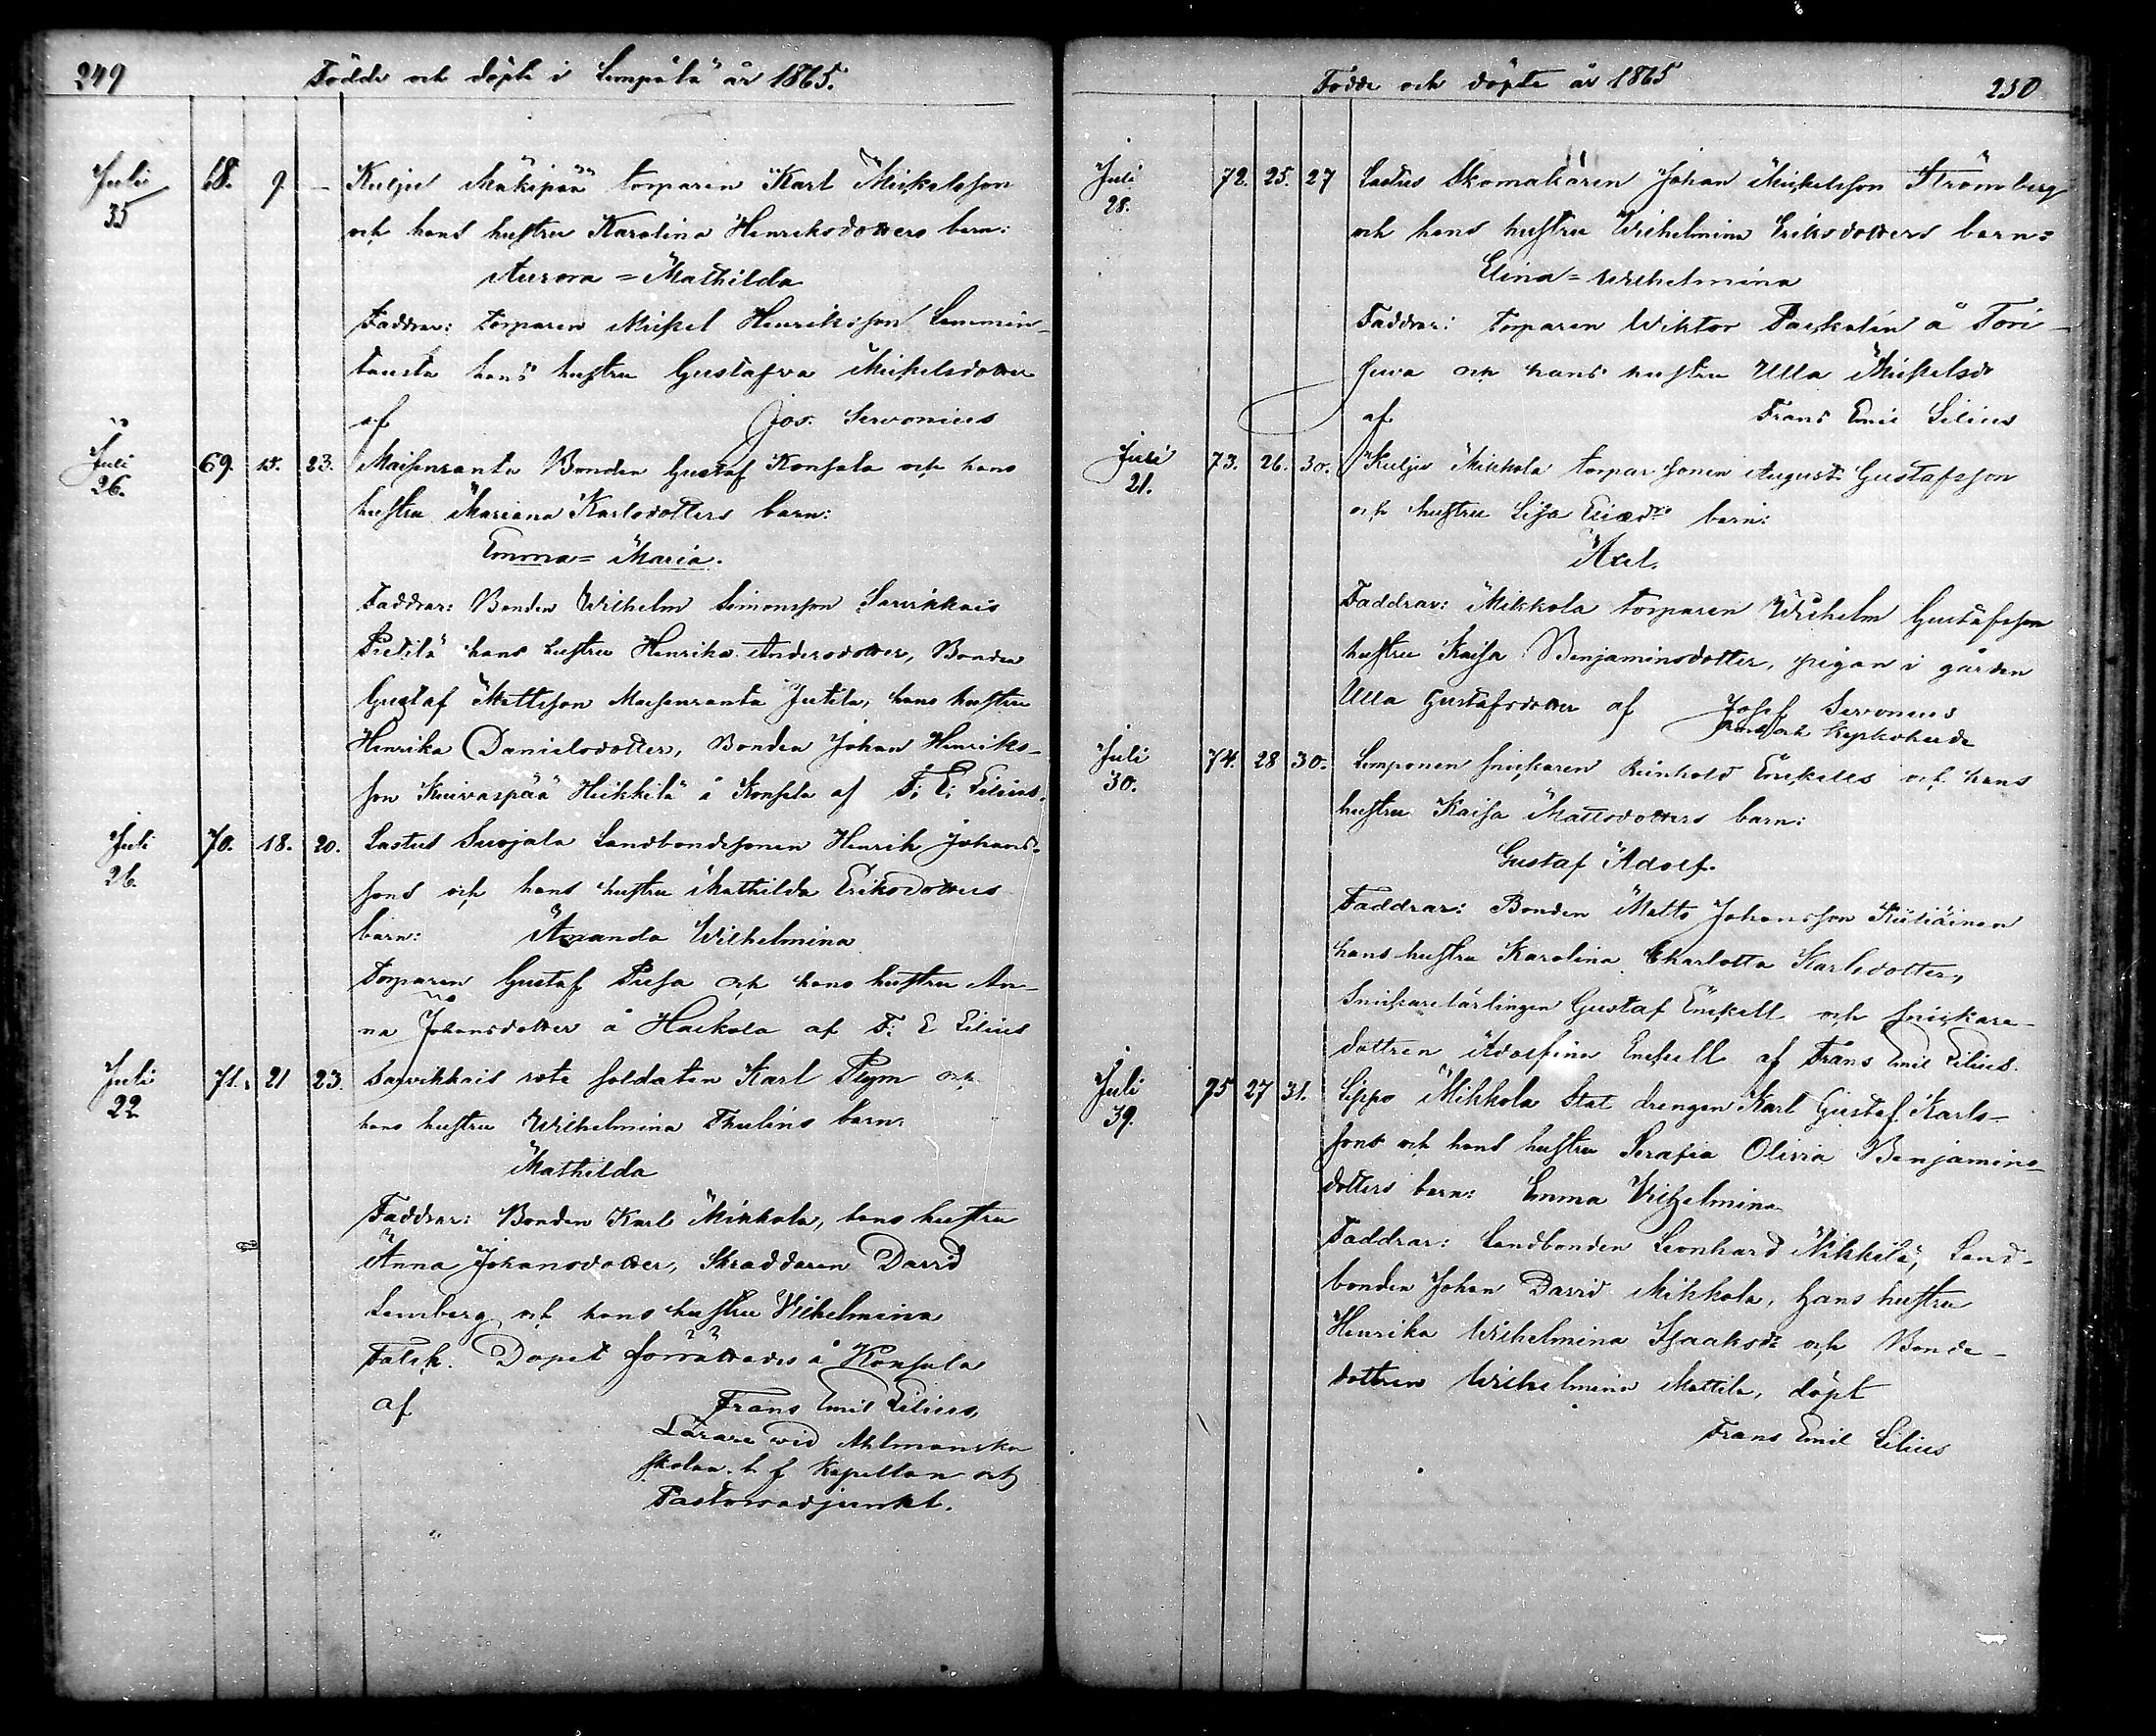 249 Födde och döpte i Lempälä år 1865.
Juli 68. 9. — Kuljus Mäkipää torparen Karl Mickelsson
35 och hans hustru Karolina Henriksdotters barn:
Aurora = Mathilda
Faddrar: torparen Mickel Henriksson Lemmin-
tausta hans hustru Gustafva Mickelsdotter
af Jos. Servonius
Juli 69. 15. 23. Maisenranta Bonden Gustaf Konsala och hans
26. hustru Mariana Karlsdotters barn:
Emma = Maria.
Faddrar: Bonden Wilhelm Simonsson Sarvikkais
Pietilä hans hustru Henrika Andersdotter, Bonden
Gustaf Mattsson Maisenranta Jutila, hans hustru
Henrika Danielsdotter, Bonden Johan Henriks-
son Kuivaspää Heikkilä å Konsala af F. E. Lilius.
Juli 70. 18. 20. Lastus Suojala Landbondesonen Henrik Johans-
26. sons och hans hustru Mathilda Eriksdotters
barn: Amanda Wilhelmina
torparen Gustaf Piesa och hans hustru An-
na Johansdotter å Hackola af F. E Lilius
Juli 71. 21 23. Sarvikkais rote soldaten Karl Plym och
22 hans hustru Wilhelmina Thulins barn:
Mathilda
Faddrar: Bonden Karl Mikkola, hans hustru
Anna Johansdotter, Skräddaren David
Lemberg och hans hustru Vilhelmina
Falck. Dopet förrättades å Konsala
af Frans Emil Lilius,
Lärare vid Ahlmanska
skolan. t. f. Kapellan och
Pastorsadjunkt.
Födde och döpte år 1865 250
Juli 72. 25. 27 Lastus Skomakaren Johan Mickelsson Strömberg
28. och hans hustru Wilhelmina Eriksdotters barn:
Elina = Wilhelmina
Faddrar: torparen Wiktor Packalén å Tori-
suva och hans hustru Ulla Mickelsdr
af Frans Emil Lilius
Juli 73. 26. 30. Kuljus Mikkola torpar sonen August Gustafsson
21. och hustru Lisa barn:
Axel.
Faddrar: Mikkola torparen Wilhelm Gustafsson
hustru Kaisa Benjaminsdotter, pigan i gården
Ulla Gustafsdotter af Josef Servonius
och Kyrkoherde
Juli 74. 28 30. Lemponen snickaren Reinhold Enckells och hans
30. hustru Kaisa Mattsdotters barn:
Gustaf Adolf.
Faddrar: Bonden Matts Johansson Kuliäinen
hans hustru Karolina Charlotta Karlsdotter,
Snickarelärlingen Gustaf Enckell och snickare-
dottren Adolfina Enckell af Frans Emil Lilius.
Juli 75 27 31. Sippo Mikkola Stat drengen Karl Gustaf Karls-
39. sons och hans hustru Serafia Olivia Benjamins-
dotters barn: Emma Vilhelmina
Faddrar: Landbonden Leonhard Nikkilä, Land-
bonden Johan David Mikkola, hans hustru
Henrika Wilhelmina Isaaksdr och Bonde-
dottren Wilhelmina Mattila, döpt
Frans Emil Lilius